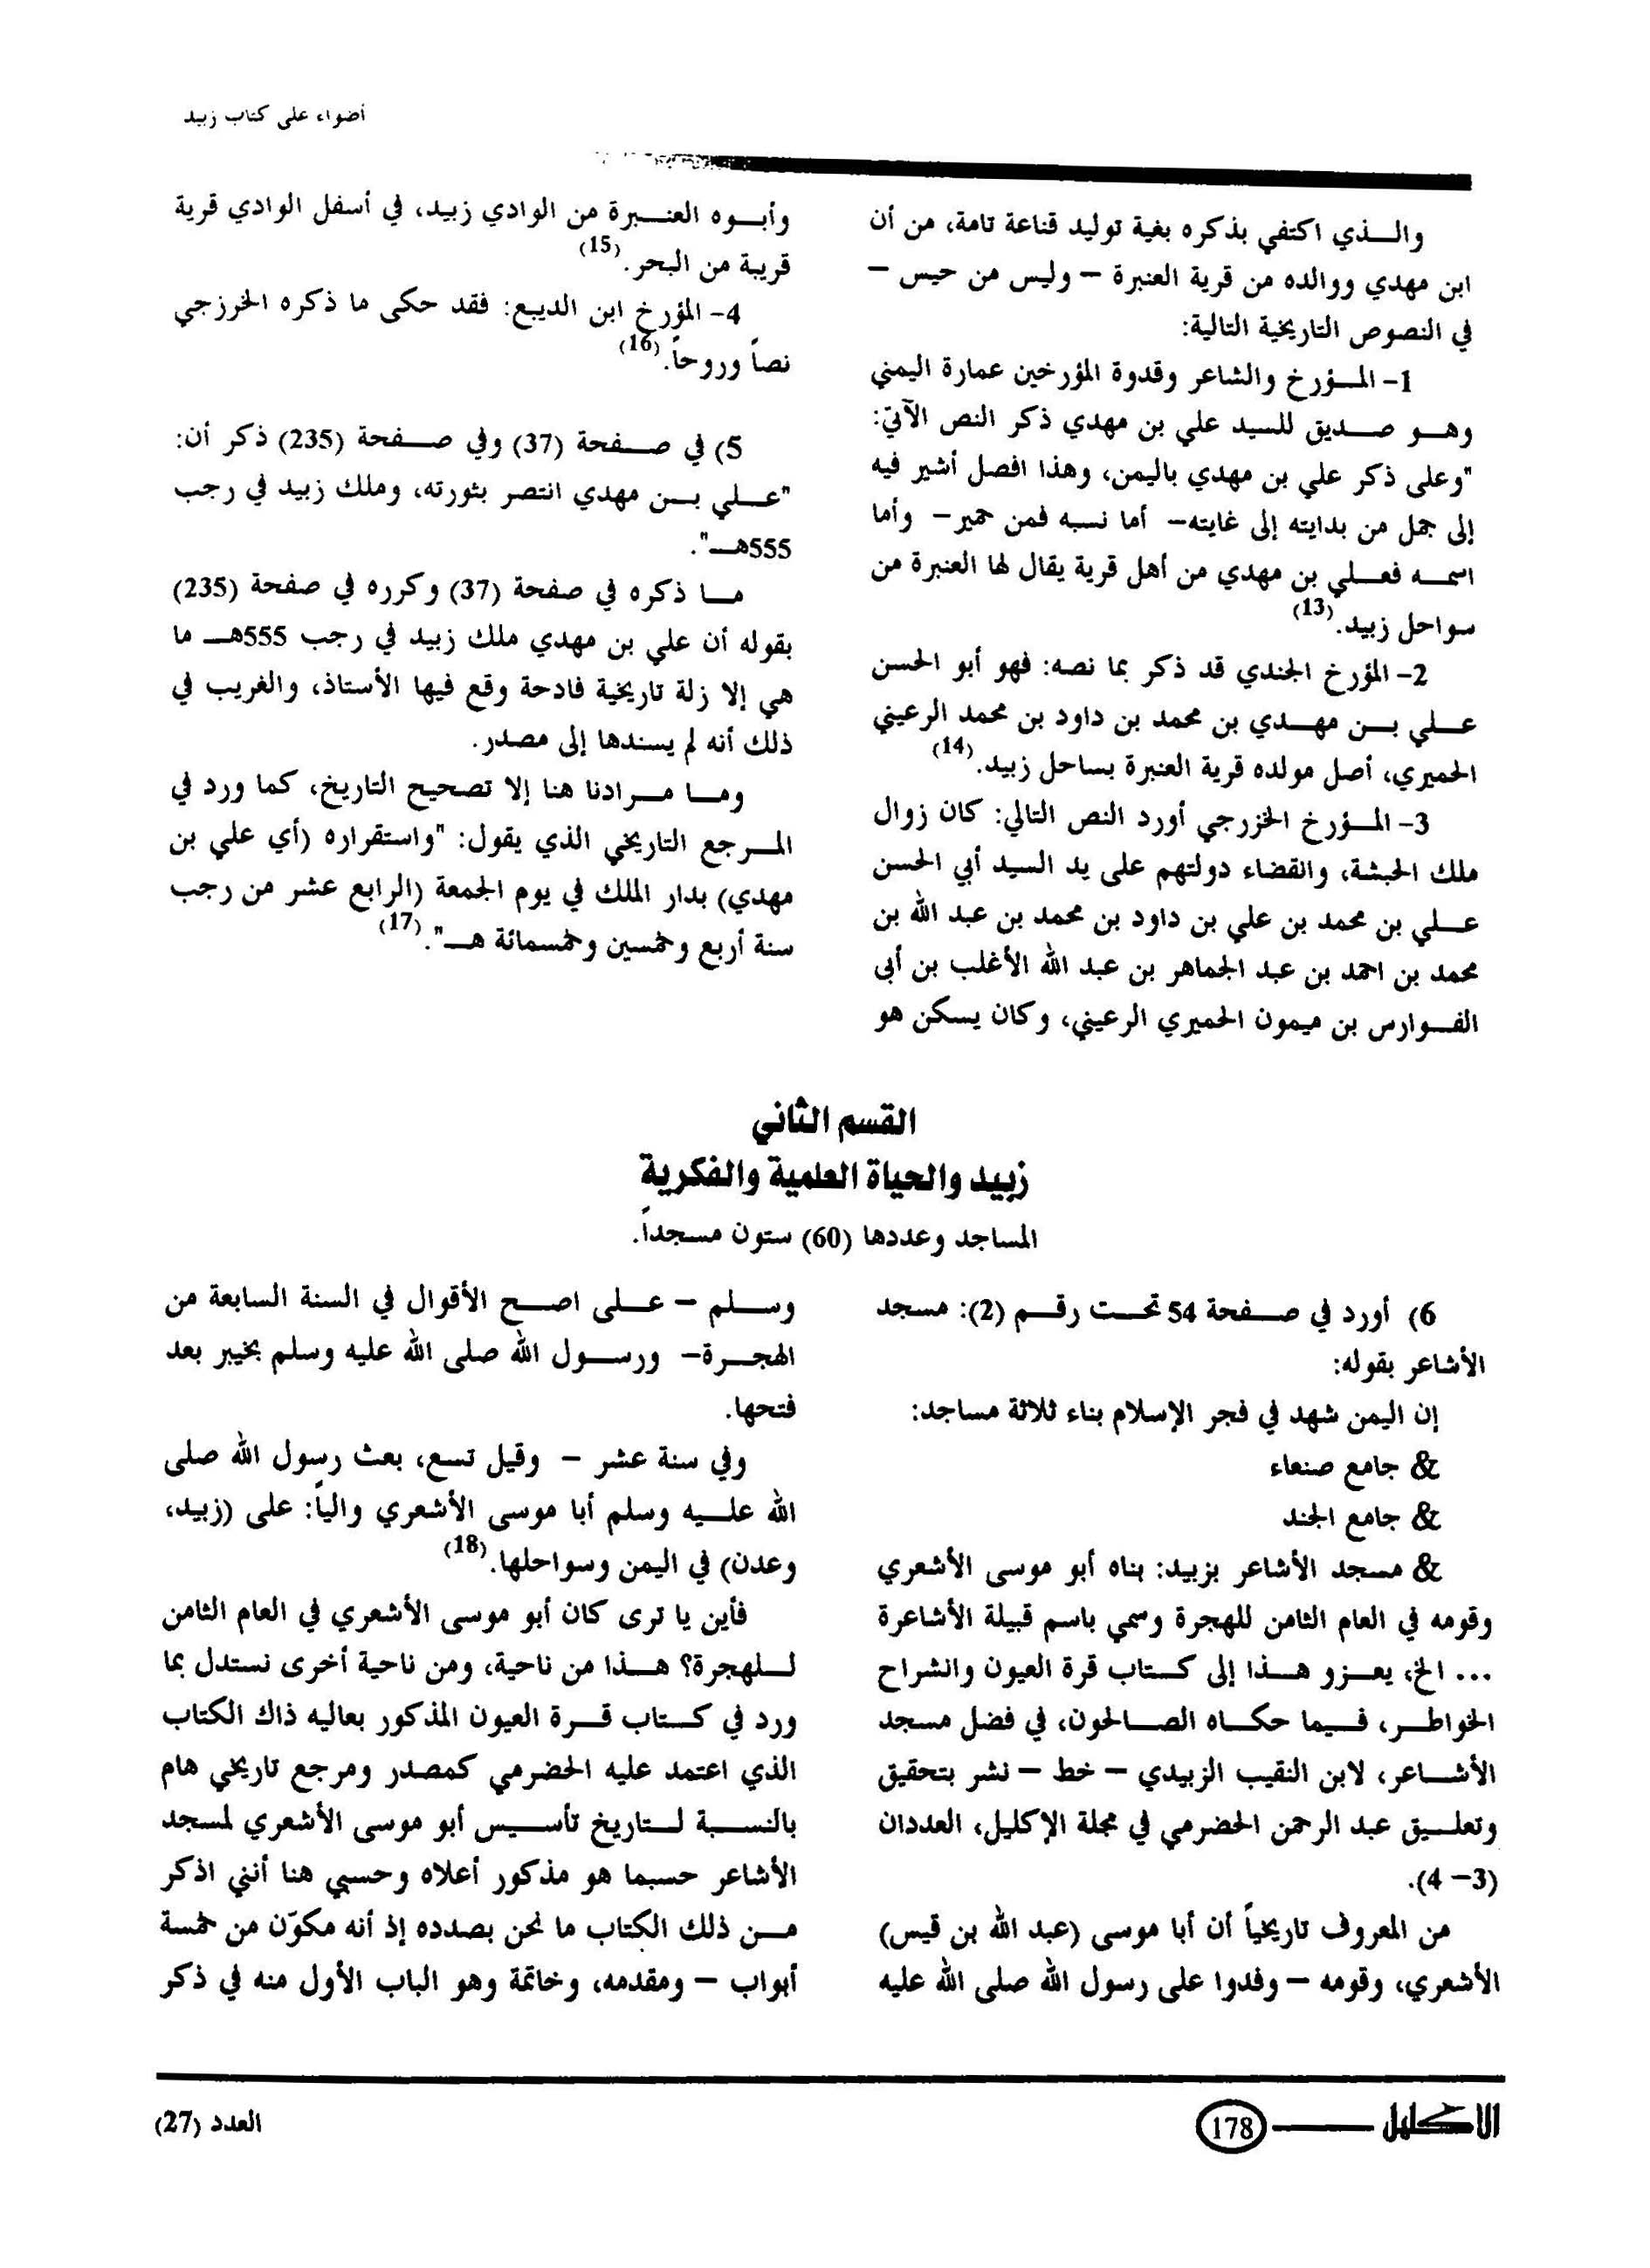 أضواء على كتاب زبيد
والـذي اكتفي بذكره بغية توليد قناعة تامة، من أن
ابن مهدي ووالده من قرية العنبرة – وليس من حيس –
في النصوص التاريخية التالية:
1- المـؤرخ والشاعر وقدوة المؤرخين عمارة اليمني
وهـو صـديق للسيد علي بن مهدي ذكر النص الآتي:
"وعلى ذكر علي بن مهدي باليمن، وهذا افصل أشير فيه
إلى جمل من بدايته إلى غايته– أما نسبه فمن حمير– وأما
اسمـه فعـلي بن مهدي من أهل قرية يقال لها العنبرة من
سواحل زبيد.(13)
2- المؤرخ الجندي قد ذكر بما نصه: فهو أبو الحسن
عـلي بـن مهـدي بن محمد بن داود بن محمد الرعيني
الحميري، أصل مولده قرية العنبرة بساحل زبيد.(14)
3- المـؤرخ الخزرجي أورد النص التالي: كان زوال
ملك الحبشة، وانقضاء دولتهم على يد السيد أبي الحسن
عـلي بن محمد بن علي بن داود بن محمد بن عبد الله بن
محمد بن احمد بن عبد الجماهر بن عبد الله الأغلب بن أبى
الفـوارس بن ميمون الحميري الرعيني، وكان يسكن هو
وأبـوه العنـبرة من الوادي زبيد، في أسفل الوادي قرية
قريبة من البحر.(15)
4- المؤرخ ابن الديبع: فقد حكى ما ذكره الخرزجي
نصاً وروحاً.(16)
5) في صـفحة (37) وفي صـفحة (235) ذكر أن:
"عـلي بـن مهدي انتصر بثورته، وملك زبيد في رجب
555هـ".
مـا ذكره في صفحة (37) وكرره في صفحة (235)
بقوله أن علي بن مهدي ملك زبيد في رجب 555هـ ما
هي إلا زلة تاريخية فادحة وقع فيها الأستاذ، والغريب في
ذلك أنه لم يسندها إلى مصدر.
ومـا مـرادنا هنا إلا تصحيح التاريخ، كما ورد في
المـرجع التاريخي الذي يقول: "واستقراره (أي علي بن
مهدي) بدار الملك في يوم الجمعة (الرابع عشر من رجب
سنة أربع وخمسين وخمسمائة هـ".(17)
القسم الثاني
زبيد والحياة العلمية والفكرية
المساجد وعددها (60) ستون مسجداً.
6) أورد في صـفحة 54 تحـت رقـم (2): مسجد
الأشاعر بقوله:
إن اليمن شهد في فجر الإسلام بناء ثلاثة مساجد:
& جامع صنعاء
& جامع الجند
& مسجد الأشاعر بزبيد: بناه أبو موسى الأشعري
وقومه في العام الثامن للهجرة وسمي باسم قبيلة الأشاعرة
... الخ، يعـزو هـذا إلى كـتاب قرة العيون وانشراح
الخواطـر، فـيما حكـاه الصـالحون، في فضل مسجد
الأشـاعر، لابن النقيب الزبيدي – خط – نشر بتحقيق
وتعلـيق عبد الرحمن الحضرمي في مجلة الإكليل، العددان
(3– 4).
من المعروف تاريخياً أن أبا موسى (عبد الله بن قيس)
الأشعري، وقومه – وفدوا على رسول الله صلى الله عليه
وسـلم – عـلى اصـح الأقوال في السنة السابعة من
الهجـرة– ورسـول الله صلى الله عليه وسلم بخيبر بعد
فتحها.
وفي سنة عشر – وقيل تسع، بعث رسول الله صلى
الله علـيه وسلم أبا موسى الأشعري والياً: على (زبيد،
وعدن) في اليمن وسواحلها.(18)
فأين يا ترى كان أبو موسى الأشعري في العام الثامن
لـلهجرة؟ هـذا من ناحية، ومن ناحية أخرى نستدل بما
ورد في كـتاب قـرة العيون المذكور بعاليه ذاك الكتاب
الذي اعتمد عليه الحضرمي كمصدر ومرجع تاريخي هام
بالنسـبة لـتاريخ تأسـيس أبو موسى الأشعري لمسجد
الأشاعر حسبما هو مذكور أعلاه وحسبي هنا أنني اذكر
مـن ذلك الكتاب ما نحن بصدده إذ أنه مكوّن من خمسة
أبواب – ومقدمه، وخاتمة وهو الباب الأول منه في ذكر
الاكليل 178
العدد (27)